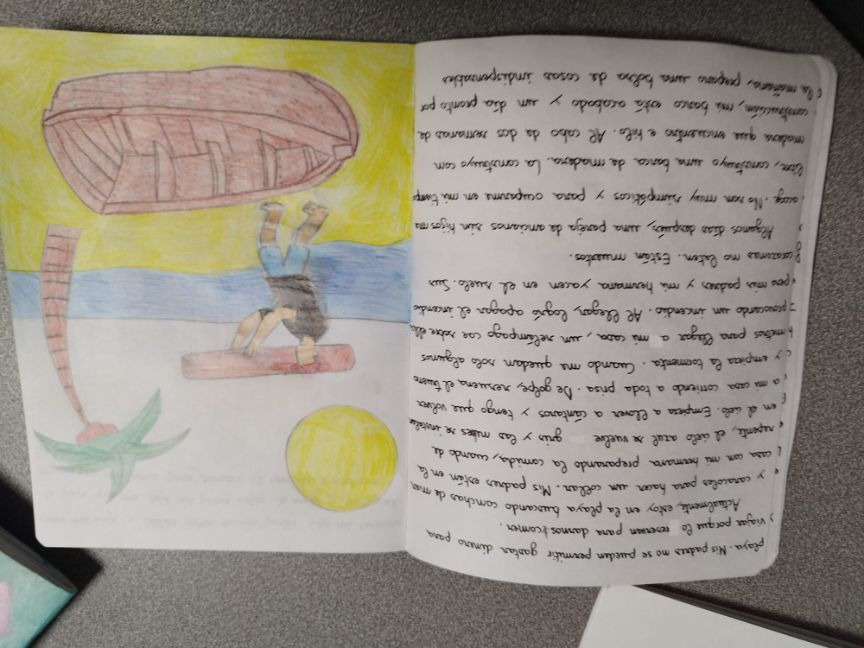 playa. Mis padres no se pueden permitir gastar dinero para
viajar porque lo reservan para darnos comer.
Actualmente, estoy en la playa buscando conchas de mar
y caracoles para hacer un collar. Mis padres están en la
casa con mi hermana preparando la comida, cuando de
repente, el cielo azul se vuelve gris y las nubes se instalan
en el cielo. Empieza a llover a cántaros y tengo que volver
a mi casa corriendo a toda prisa. De golpe, resuena el trueno
y empieza la tormenta. Cuando me quedan solo algunos
metros para llegar a mi casa, un relámpago cae sobre ella
provocando un incendio. Al llegar, logró apagar el incendio
pero mis padres y mi hermana yacen en el suelo. Sus
corazones no laten. Están muertos.
Algunos días después, una pareja de ancianos sin hijos me
acoge. No son muy simpáticos y para ocuparme en mi tiempo
libre, construyo una barca de madera. La construyo con
madera que encuentro e hilo. Al cabo de dos semanas de
construcción, mi barco está acabado y un día pronto por
la mañana, preparo una bolsa de cosas indispensables